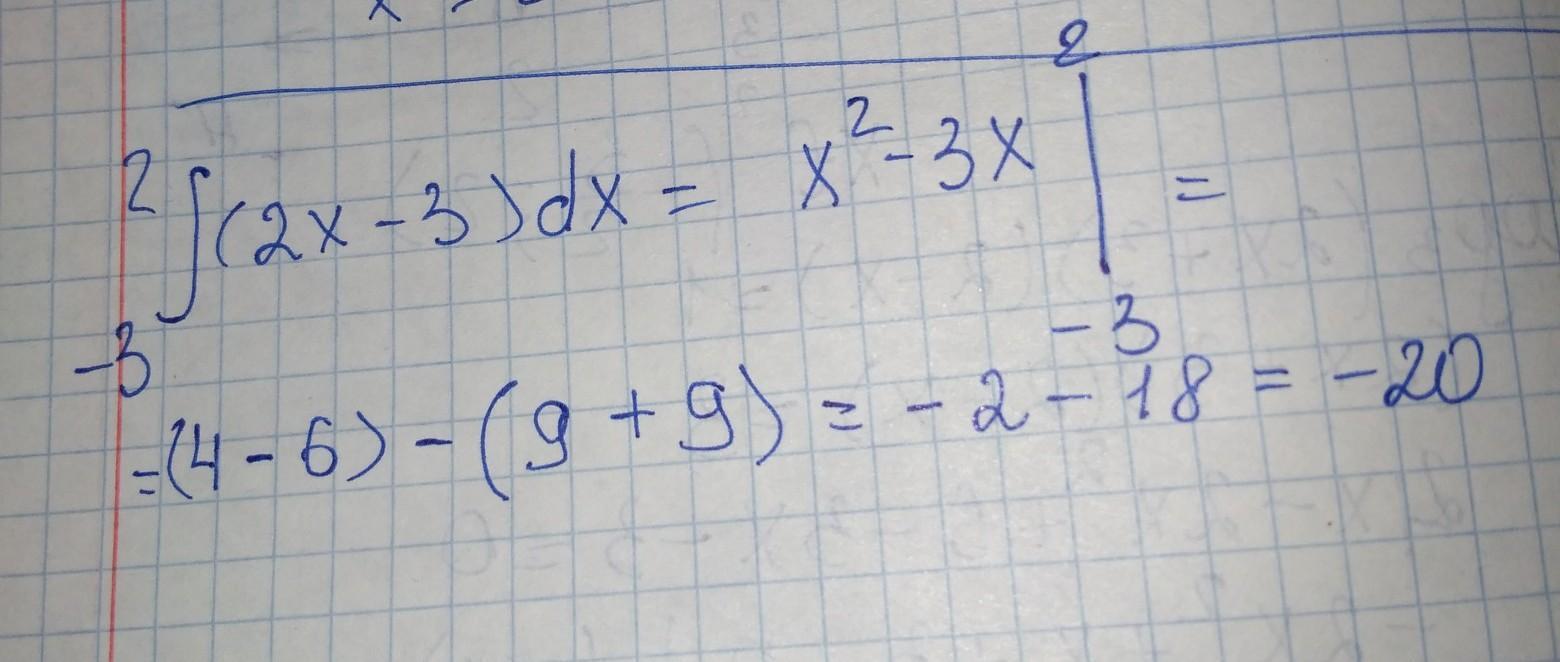 2
∫(2x-3)dx = x²-3x |
-3
2
-3
=
=(4-6)-(9+9) = -2-18 = -20